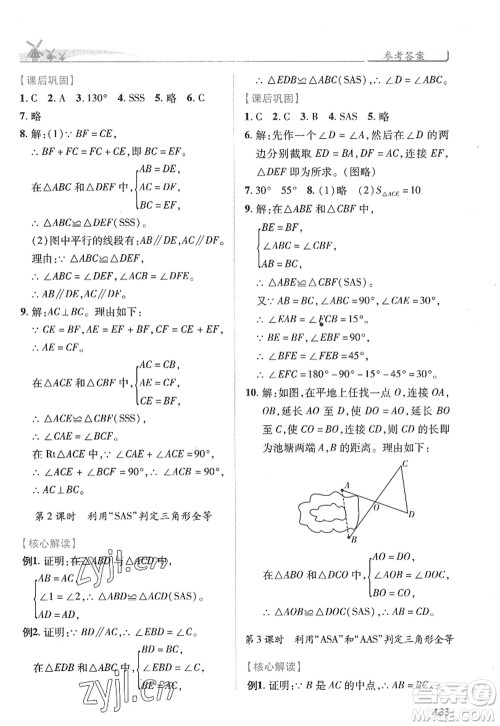 参考答案
【课后巩固】
1. C  2. A  3. 130°  4. SSS  5. 略  6. C
7. 略
8. 解：(1)∵BF=CE，
∴BF+FC=FC+CE，
∴BC=EF.
在△ABC和△DEF中，
AB=DE，
AC=DF，
BC=EF，
∴△ABC≌△DEF(SSS).
(2)图中平行的线段有：AB∥DE，AC∥DF.
理由：∵△ABC≌△DEF，
∴∠ABC=∠DEF，∠ACB=∠DFE，
∴AB∥DE，AC∥DF.
9. 解：AC⊥BC. 理由如下：
∵CE=BF，AE=CF，AC=BC，
在△ACE和△CBF中，
AC=CB，
AE=CF，
CE=BF，
∴△ACE≌△CBF(SSS)，
∴∠CAE=∠BCF.
在Rt△ACE中，
∵∠CAE+∠ACE=90°，
∴∠ACE+∠BCF=90°，
∴∠ACB=90°，∴AC⊥BC.
第2课时 利用“SAS”判定三角形全等
【核心解读】
例1. 证明：在△ABD与△ACD中，
AB=AC，
∠1=∠2，∴△ABD≌△ACD(SAS).
AD=AD，
例2. 证明：∵BD∥AC，∴∠EBD=∠C.
BD=BC，
在△EDB和△ABC中，∠EBD=∠C，
BE=AC，
∴△EDB≌△ABC(SAS)，∴∠D=∠ABC.
【课后巩固】
1. C  2. D  3. B  4. SAS  5. 略
6. 解：先作一个∠D=∠A，然后在∠D的两边分别截取DE=AB，DF=AC，连接EF，△DEF即为所求.(图略)
7. 30° 55°  8. (1)略 (2)S△ACE=10
9. 解：在△ABE和△CBF中，
BE=BF，
∠ABC=∠CBF，
AB=CB，
∴△ABE≌△CBF(SAS)，
∴∠EAB=∠FCB.
又∵∠CAB=∠ACB=45°，∠CAE=30°，
∴∠EAB=∠FCB=15°.
∵BE=BF，∠EBF=90°，
∴∠BFE=∠FEB=45°，
∴∠EFC=180°-90°-15°-45°=30°.
10. 解：如图，在平地上任找一点O，连接OA，OB，延长AO至D，使DO=AO，延长BO至C，使CO=BO，连接CD，则CD的长度即为池塘两端A，B的距离. 理由如下：
A
B
C
O
D
在△AOB和△DOC中，
AO=DO，
∠AOB=∠DOC，
BO=CO，
∴△AOB≌△DOC(SAS)，
∴AB=CD.
第3课时 利用“ASA”和“AAS”判定三角形全等
【核心解读】
例1. 证明：∵B是AC的中点，∴AB=BC.
zyjl.cn
zyjl.cn